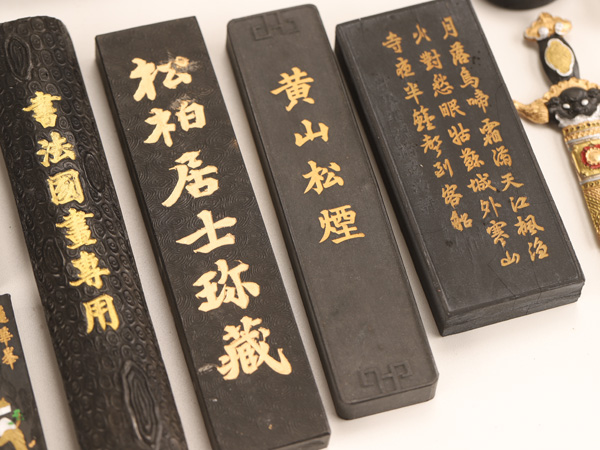 書法國畫專用
松柏居士珍藏
黄山松煙
月落烏啼霜滿天江楓漁
火對愁眠姑蘇城外寒山
寺夜半鐘聲到客船
華峯